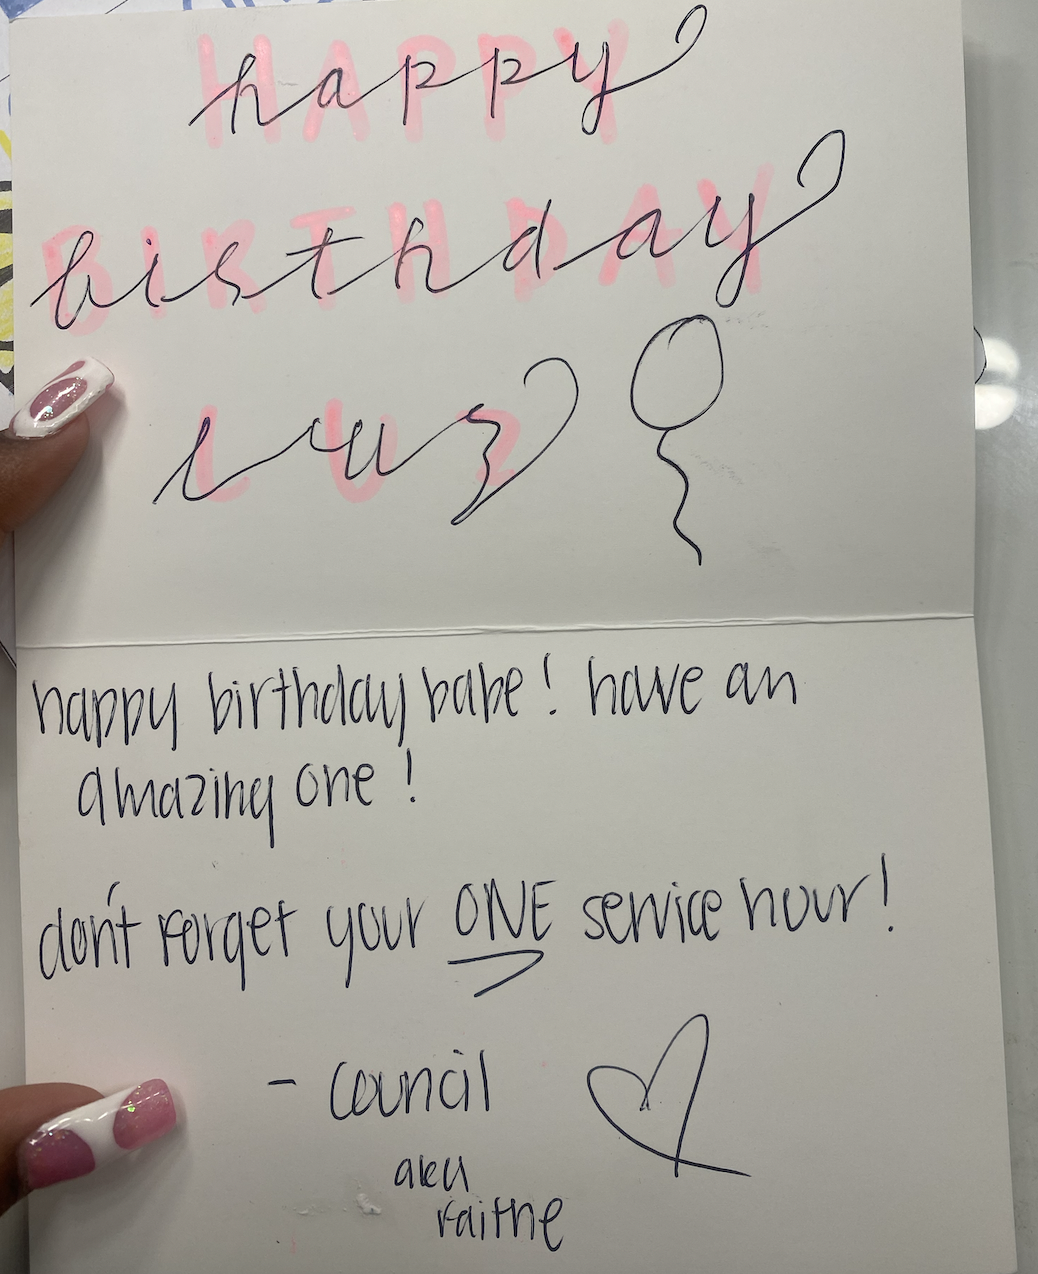 happy
birthday
luz
happy birthday babe! have an
amazing one!
don't forget your ONE service hour!
- council
aka
faithe